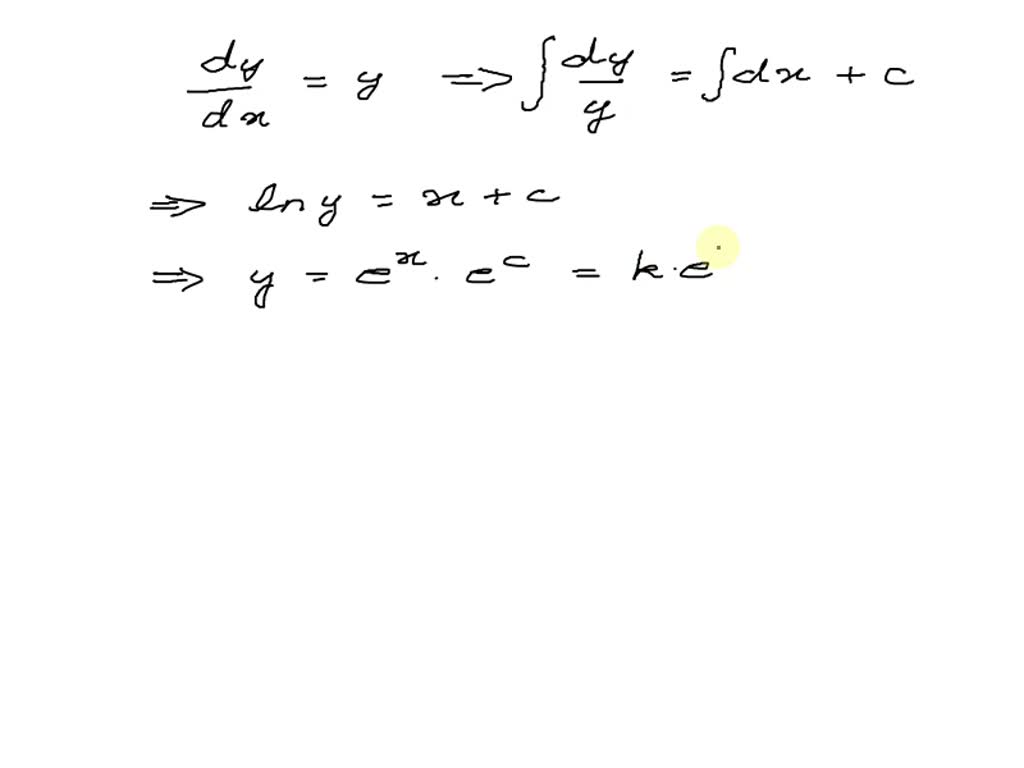 dy/dx = y => ∫ dy/y = ∫dx + c
=> ln y = x + c
=> y = e^x · e^c = k·e